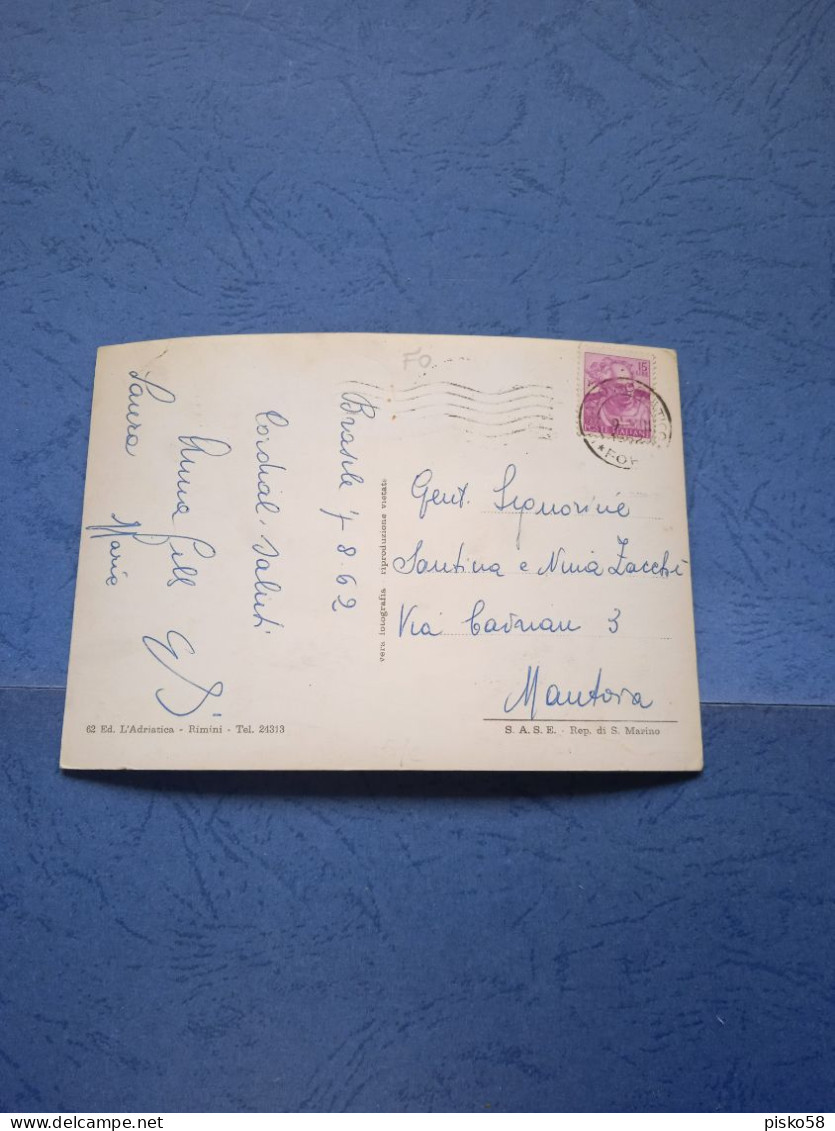 FO
15
LIRE
POSTE ITALIANE
Brasile 7.8.62
Cordiali saluti
Anna
Laura
Maria
vera fotografia riproduzione vietata
Gent. Signorine
Santina e Nina Zacchè
Via 3
Mantova
62 Ed. L'Adriatica - Rimini - Tel. 24313
S. A. S. E. - Rep. di S. Marino
pisko58